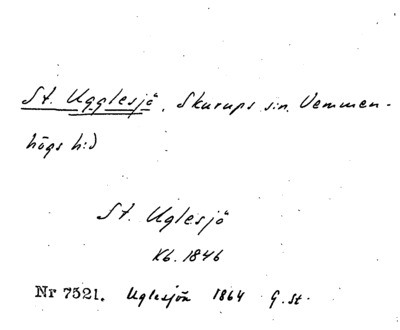 St. Ugglesjö, Skurups sn. Vemmen-
högs h:d
St. Uglesjö
Kb. 1846
Nr 7521. Uglesjön 1864 G. St.